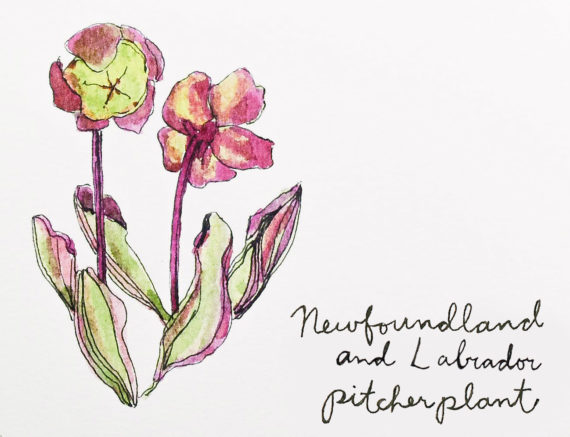 Newfoundland
and Labrador
pitcher plant